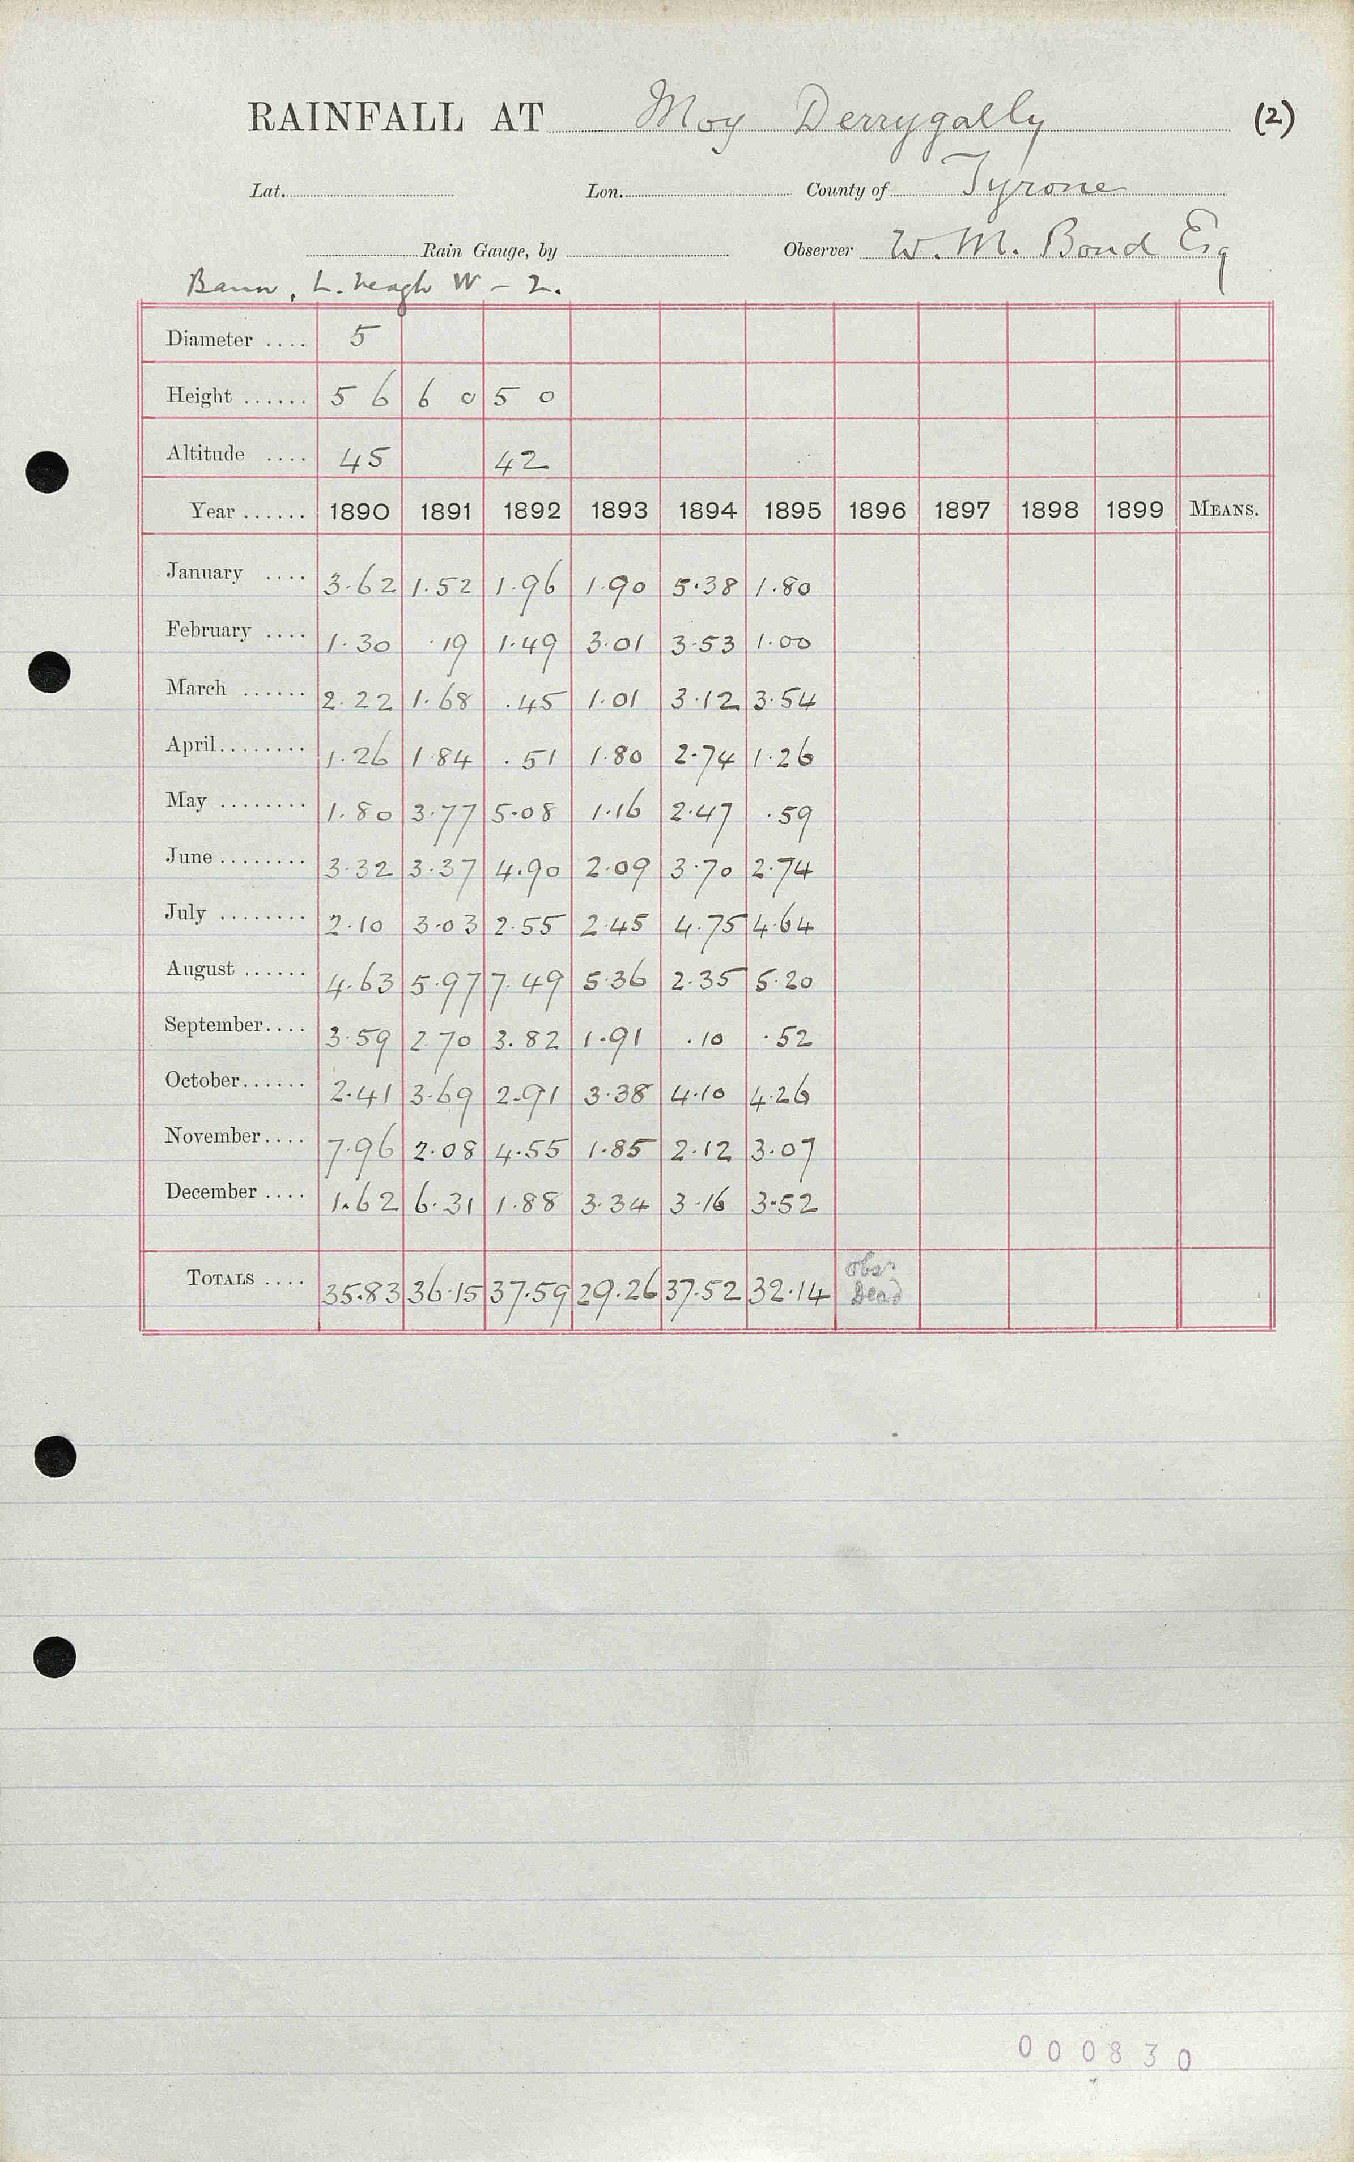 RAINFALL AT Moy Derrygally (2)
Lat. Lon. County of Tyrone
Rain Gauge, by Observer W. M. Bond Esq
Bann, L. Neagh W - 2.
Diameter .... 5
Height ...... 5 6 6 0 5 0
Altitude .... 45 42
Year ...... 1890 1891 1892 1893 1894 1895 1896 1897 1898 1899 MEANS.
January .... 3.62 1.52 1.96 1.90 5.38 1.80
February .... 1.30 .19 1.49 3.01 3.53 1.00
March ...... 2.22 1.68 .45 1.01 3.12 3.54
April........ 1.26 1.84 .51 1.80 2.74 1.26
May ........ 1.80 3.77 5.08 1.16 2.47 .59
June ........ 3.32 3.37 4.90 2.09 3.70 2.74
July ........ 2.10 3.03 2.55 2.45 4.75 4.64
August ...... 4.63 5.97 7.49 5.36 2.35 5.20
September.... 3.59 2.70 3.82 1.91 .10 .52
October...... 2.41 3.69 2.91 3.38 4.10 4.26
November.... 7.96 2.08 4.55 1.85 2.12 3.07
December .... 1.62 6.31 1.88 3.34 3.16 3.52
TOTALS .... 35.83 36.15 37.59 29.26 37.52 32.14 obsr
Dead
000830